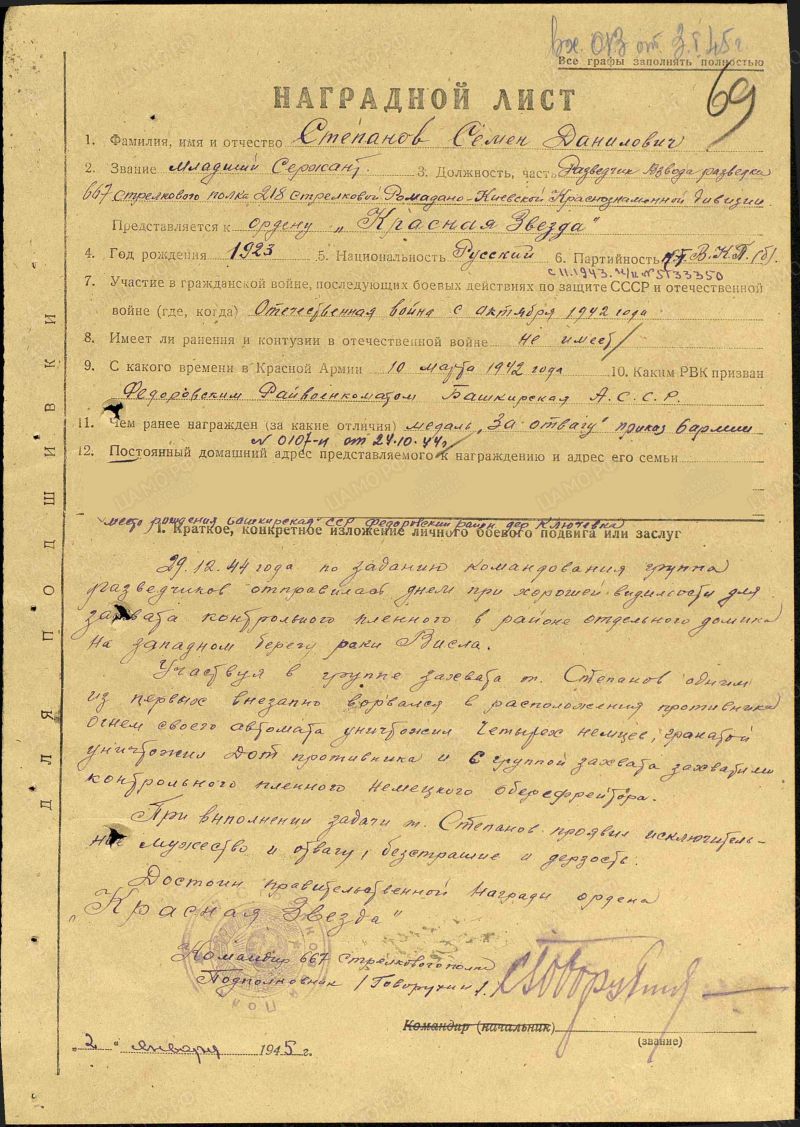 вх. 013 от 3.I.45г.
Все графы заполнять полностью
69
НАГРАДНОЙ ЛИСТ
1. Фамилия, имя и отчество Степанов Семен Данилович
2. Звание Младший Сержант. 3. Должность, часть Разведчик взвода разведки
667 стрелкового полка 218 стрелковой Ромадано-Киевской Краснознаменной дивизии
Представляется к ордену „Красная Звезда"
4. Год рождения 1923 5. Национальность Русский 6. Партийность В.К.П.(б).
с 11.1943. ч/б №5733350
7. Участие в гражданской войне, последующих боевых действиях по защите СССР и отечественной
войне (где, когда) Отечественная война с октября 1942 года
8. Имеет ли ранения и контузии в отечественной войне не имеет
9. С какого времени в Красной Армии 10 марта 1942 года 10. Каким РВК призван
Федоровским Райвоенкоматом Башкирская А.С.С.Р.
11. Чем ранее награжден (за какие отличия) медаль „За отвагу" приказ 6 армии
№ 0107-н от 24.10.44г.
12. Постоянный домашний адрес представляемого к награждению и адрес его семьи
место рождения Башкирская ССР Федоровский район дер Ключевка
I. Краткое, конкретное изложение личного боевого подвига или заслуг
29.12.44 года по заданию командования группа
разведчиков отправилась днем при хорошей видимости для
захвата контрольного пленного в районе отдельного домика
на западном берегу реки Висла.
Участвуя в группе захвата т. Степанов одним
из первых внезапно ворвался в расположения противника
огнем своего автомата уничтожил четырех немцев, гранатой
уничтожил Дот противника и с группой захвата захватили
контрольного пленного немецкого оберефрейтора.
При выполнении задачи т. Степанов проявил исключитель-
ное мужество и отвагу, безстрашие и дерзость.
Достоин правительственной награды ордена
„Красная Звезда"
Командир 667 стрелкового полка
Подполковник /Говорухин/.
Командир (начальник)
(звание)
„2" января 1945 г.
ДЛЯ ПОДШИВКИ
ЦАМО.РФ